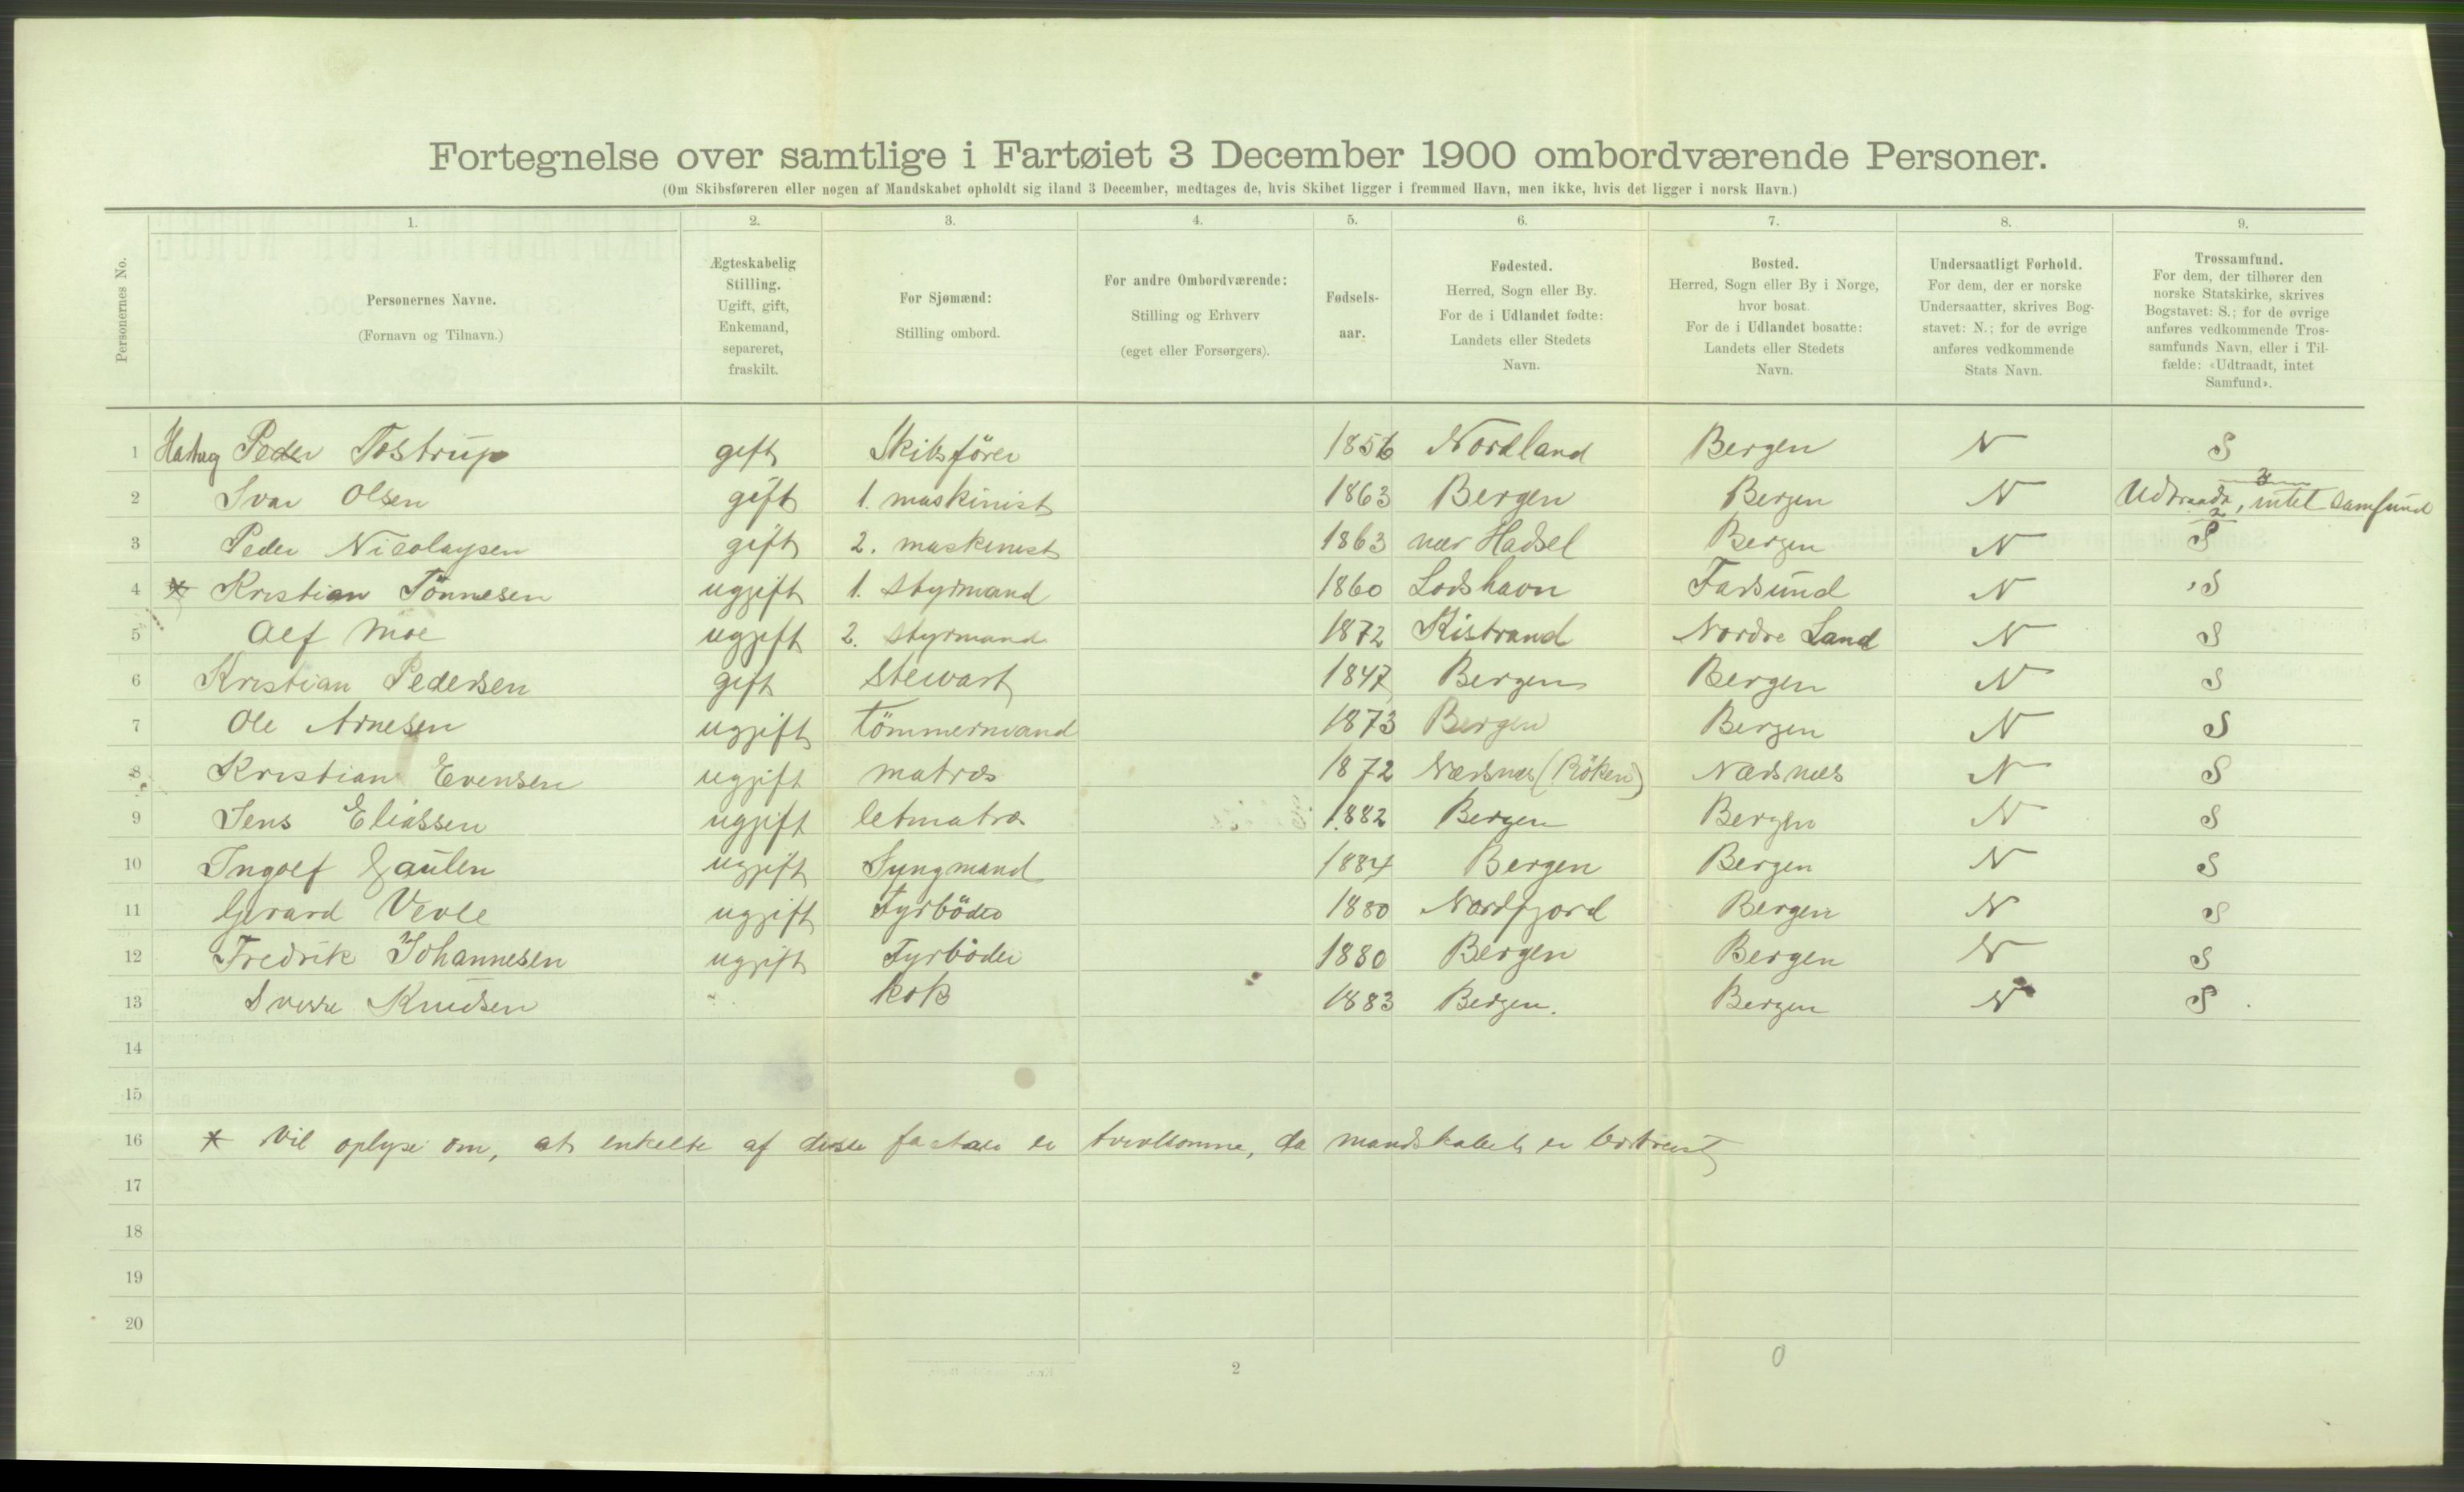 Fortegnelse over samtlige i Fartøiet 3 December 1900 ombordværende Personer.
(Om Skibsføreren eller nogen af Mandskabet opholdt sig iland 3 December, medtages de, hvis Skibet ligger i fremmed Havn, men ikke, hvis det ligger i norsk Havn.)
Personernes No.
1.
Personernes Navne.
(Fornavn og Tilnavn.)
2.
Ægteskabelig
Stilling.
Ugift, gift,
Enkemand,
separeret,
fraskilt.
3.
For Sjømænd:
Stilling ombord.
4.
For andre Ombordværende:
Stilling og Erhverv
(eget eller Forsørgers).
5.
Fødsels-
aar.
6.
Fødested.
Herred, Sogn eller By.
For de i Udlandet fødte:
Landets eller Stedets
Navn.
7.
Bosted.
Herred, Sogn eller By i Norge,
hvor bosat.
For de i Udlandet bosatte:
Landets eller Stedets
Navn.
8.
Undersaatligt Forhold.
For dem, der er norske
Undersaatter, skrives Bog-
stavet: N.; for de øvrige
anføres vedkommende
Stats Navn.
9.
Trossamfund.
For dem, der tilhører den
norske Statskirke, skrives
Bogstavet: S.; for de øvrige
anføres vedkommende Tros-
samfunds Navn, eller i Til-
fælde: «Udtraadt, intet
Samfund».
1 Peder Tostrup gift Skibsförer 1856 Nordland Bergen N S
2 Ivar Olsen gift 1. maskinist 1863 Bergen Bergen N Udtraadt, intet samfund
3 Peder Nicolaysen gift 2. maskinist 1863 nær Hadsel Bergen N S
4 * Kristian Tönnesen ugjift 1. styrmand 1860 Loshavn Farsund N S
5 Alf Moe ugjift 2. styrmand 1872 Kistrand Nordre Land N S
6 Kristian Pedersen gift Stewart 1847 Bergen Bergen N S
7 Ole Arnesen ugjift Tömmermand 1873 Bergen Bergen N S
8 Kristian Evensen ugjift matros 1872 Nærsnæs (Röken) Nærsnæs N S
9 Jens Eliassen ugjift letmatros 1882 Bergen Bergen N S
10 Ingolf ugjift Jungmand 1884 Bergen Bergen N S
11 Gerard ugjift Fyrböder 1880 Nordfjord Bergen N S
12 Fredrik Johannesen ugjift Fyrböder 1880 Bergen Bergen N S
13 Sverre Knudsen kok 1883 Bergen. Bergen N S
14
15
16 * Vil oplyse om, at enkelte af disse er tvivlsomme, da mandskabet er bortreist
17
18
19
20
2
0